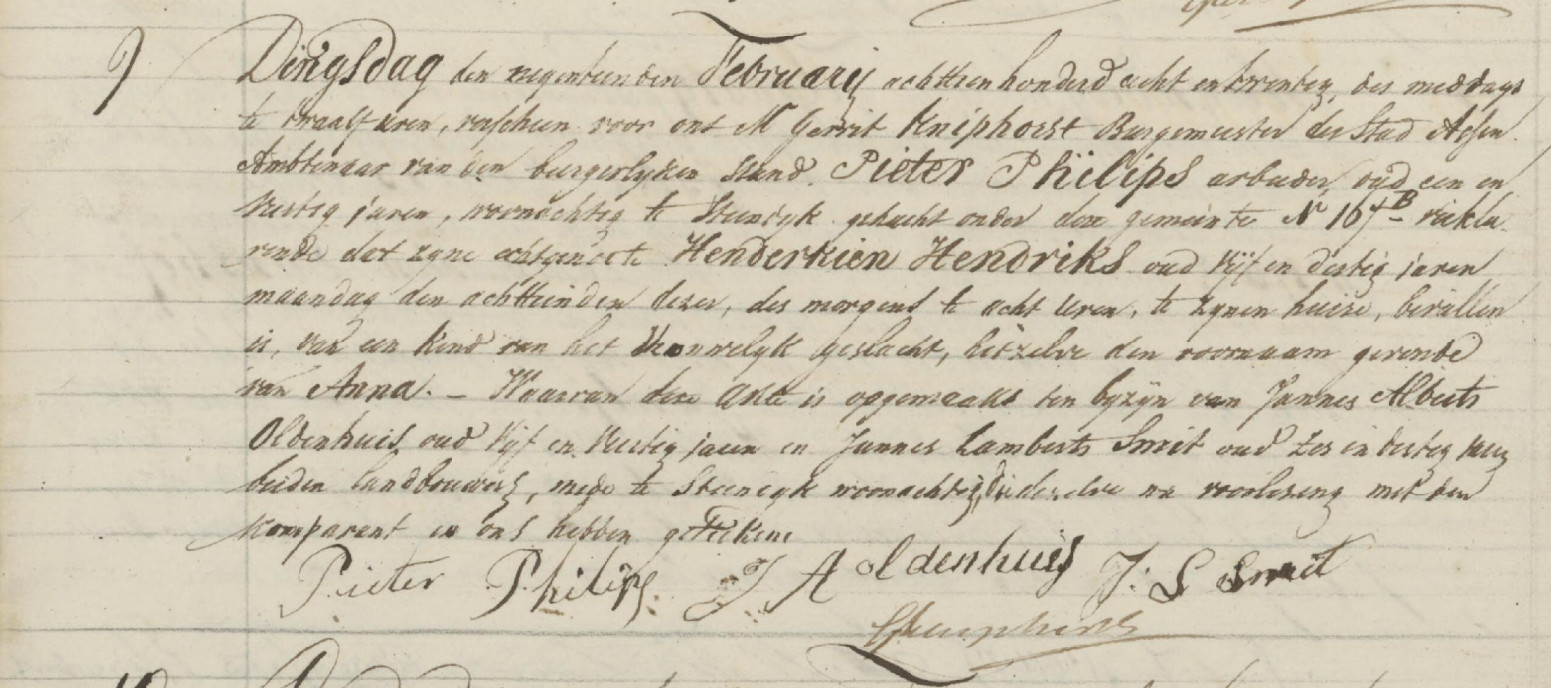 9 Dingsdag den negentienden February achttienhonderd acht en twintig, des middags
te twaalf uren, verscheen voor ons Mr Gerrit Kniphorst Burgemeester der Stad Assen
Ambtenaar van den burgerlyken stand. Pieter Philips arbeider, oud een en
veertig jaren, woonachtig te Steendyk gehucht onder deze gemeinte No 167B verkla-
rende dat zyne echtgenoote Henderkien Hendriks oud vijf en dertig jaren
maandag den achttienden dezer, des morgens te acht uren, te zynen huize, bevallen
is, van een kind van het Vrouwelyk geslacht, hetzelve den voornaam gevende
van Anna. – Waarvan deze akte is opgemaakt ten byzyn van Jannes Alberts
Oldenhuis oud vijf en veertig jaren en Jannes Lamberts Smit oud zes en dertig jaren
beiden landbouwers, mede te Steendyk woonachtig, die dezelve na voorlezing met den
komparant en ons hebben geteekend
Pieter Philips J A oldenhuis J: L Smit
GKniphorst